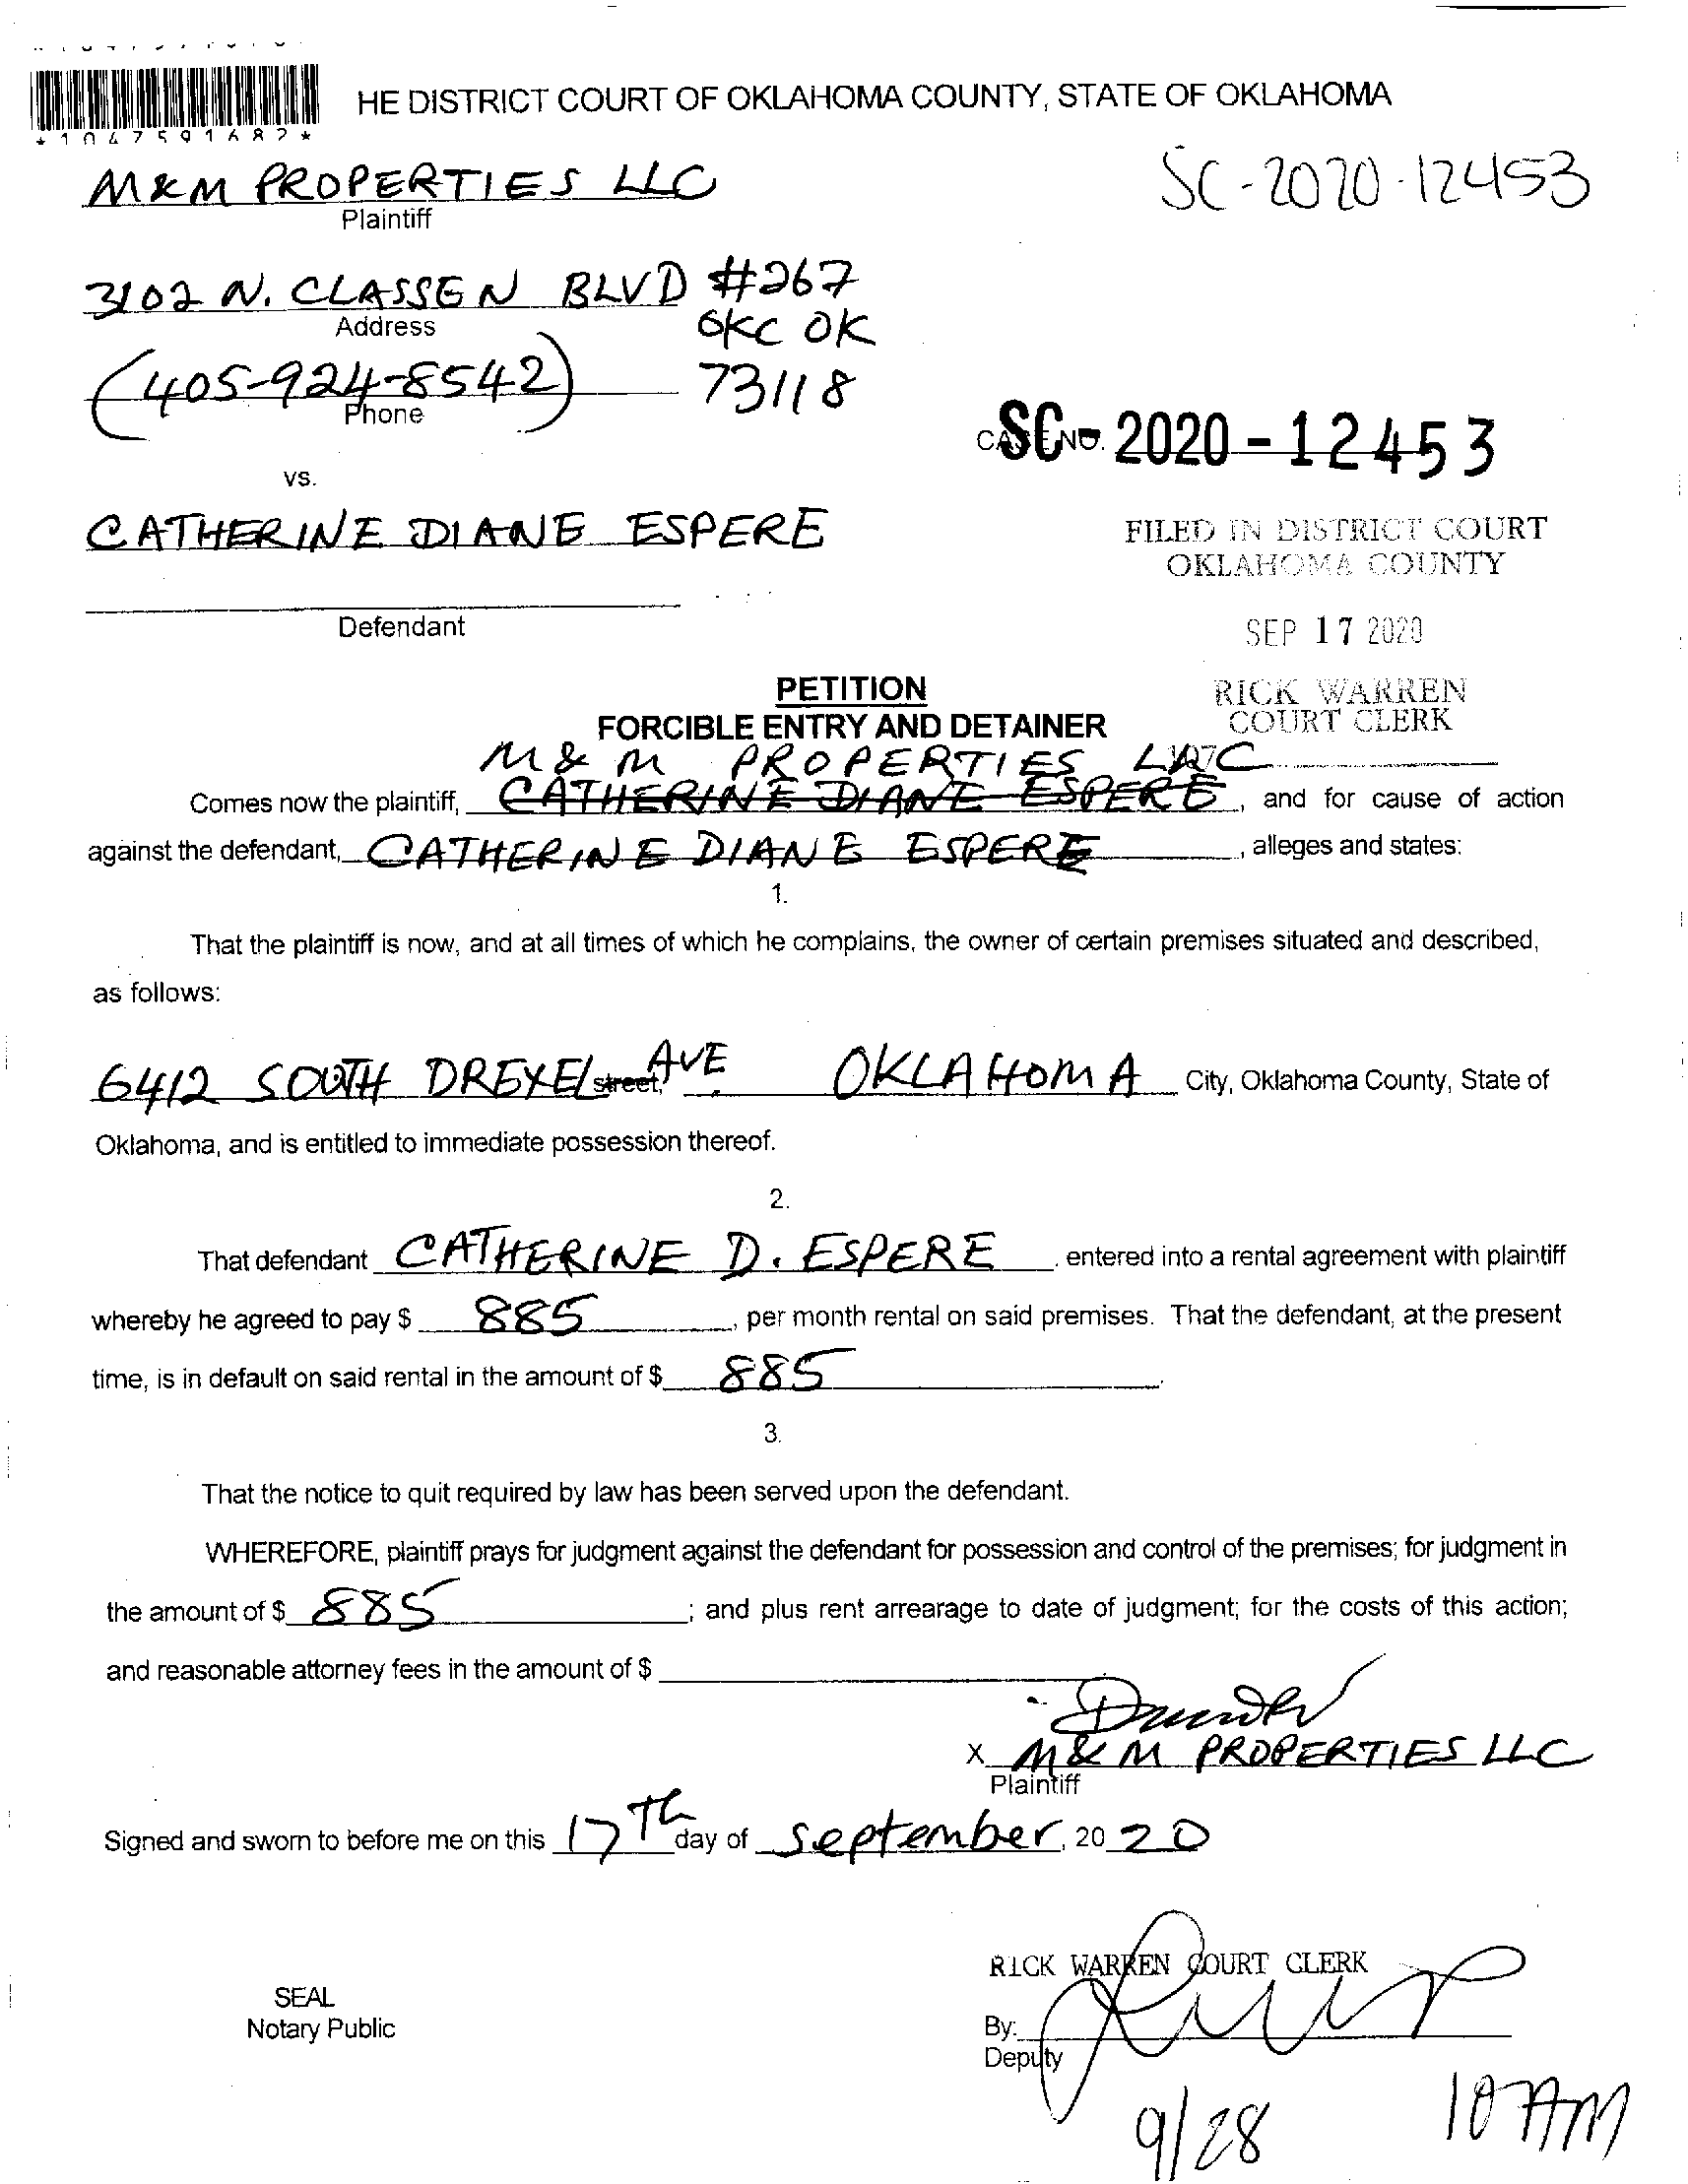 *1047591682*
HE DISTRICT COURT OF OKLAHOMA COUNTY, STATE OF OKLAHOMA
M&M PROPERTIES LLC
SC-2020-12453
Plaintiff
3102 N. CLASSEN BLVD #267
Address
OKC OK
(405-924-8542)
73118
Phone
CASE NO. SC-2020-12453
vs.
CATHERINE DIANE ESPERE
FILED IN DISTRICT COURT
OKLAHOMA COUNTY
Defendant
SEP 17 2020
PETITION
RICK WARREN
COURT CLERK
FORCIBLE ENTRY AND DETAINER
M & M PROPERTIES LLC
Comes now the plaintiff, CATHERINE DIANE ESPERE, and for cause of action
against the defendant, CATHERINE DIANE ESPERE, alleges and states:
1.
That the plaintiff is now, and at all times of which he complains, the owner of certain premises situated and described,
as follows:
6412 SOUTH DREXEL street, AVE OKLAHOMA City, Oklahoma County, State of
Oklahoma, and is entitled to immediate possession thereof.
2.
That defendant CATHERINE D. ESPERE entered into a rental agreement with plaintiff
whereby he agreed to pay $ 885, per month rental on said premises. That the defendant, at the present
time, is in default on said rental in the amount of $ 885.
3.
That the notice to quit required by law has been served upon the defendant.
WHEREFORE, plaintiff prays for judgment against the defendant for possession and control of the premises; for judgment in
the amount of $ 885; and plus rent arrearage to date of judgment; for the costs of this action;
and reasonable attorney fees in the amount of $
X M & M PROPERTIES LLC
Plaintiff
Signed and sworn to before me on this 17Th day of September, 2020
RICK WARREN COURT CLERK
SEAL
Notary Public
By:
Deputy
9/28 10 AM